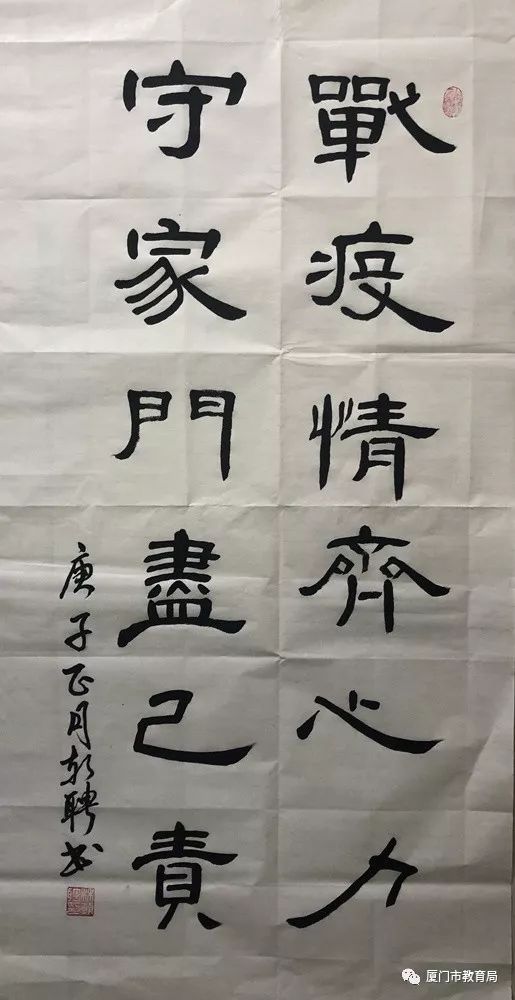 戰疫情齊心力
守家門盡己責
庚子正月朝聘书
厦门市教育局